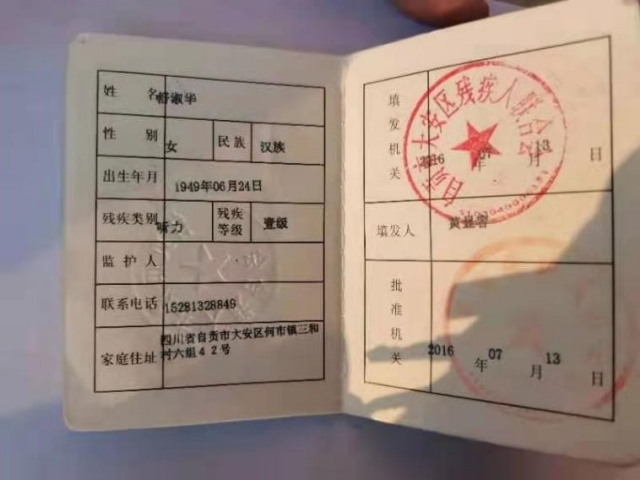 姓名 舒淑华
性别 女 民族 汉族
出生年月 1949年06月24日
残疾类别 听力 残疾等级 壹级
监护人
联系电话 15281328849
家庭住址 四川省自贡市大安区何市镇三和
村六组42号
填发机关
自贡市大安区残疾人联合会
2016年07月13日
填发人
批准机关
2016年07月13日